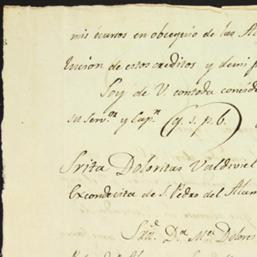 mis ecasos en obcequio de las Al
lucion de estos creditos y demi p
Soy de V. con toda consid
su Serv.or y Cap.n (q. s. p. b.
Srita Doloritas Valdiviel
Excondecita de S. Pedro del Alam
D.a M.a Dolores